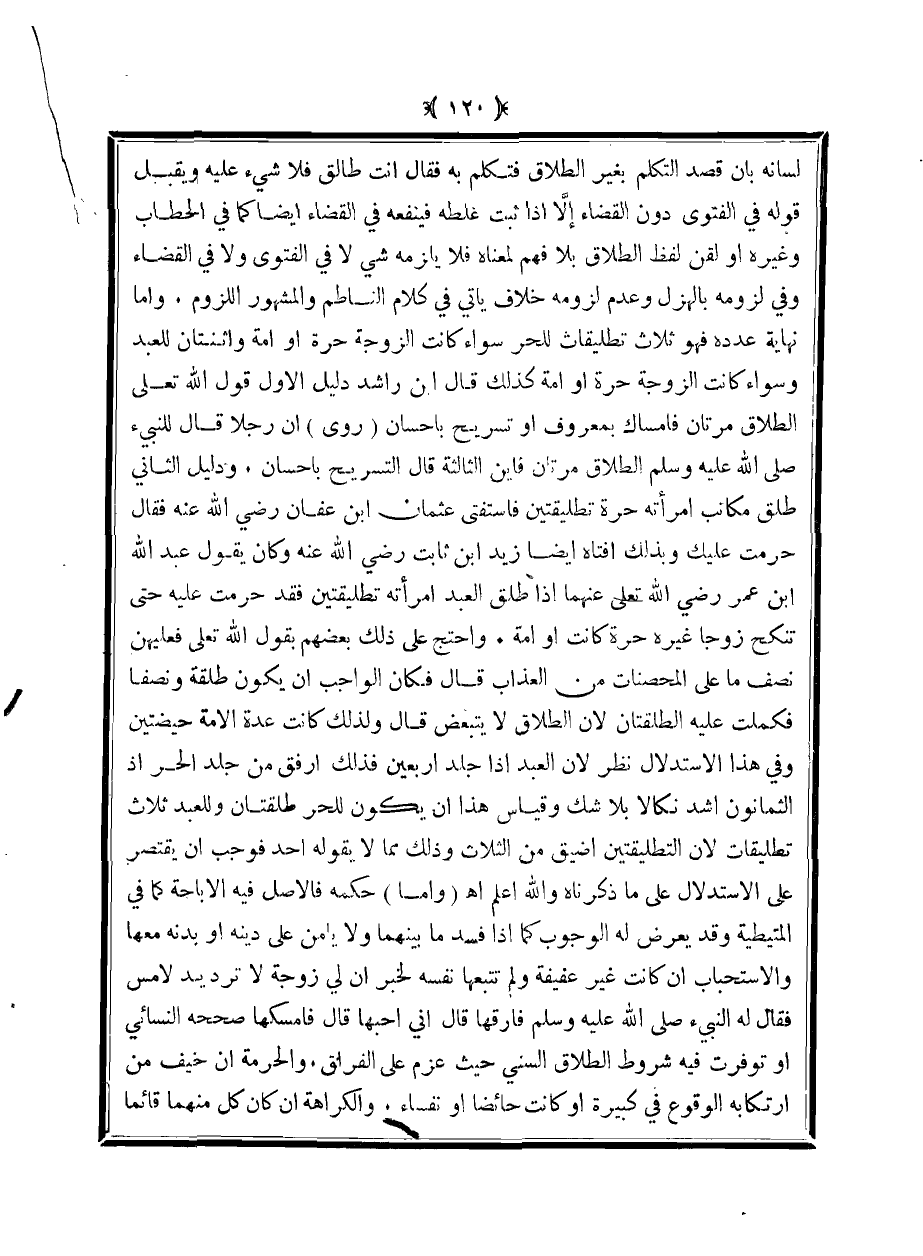 ﴿ ١٢٠ ﴾
لسانه بان قصد التكلم بغير الطلاق فتكلم به فقال انت طالق فلا شيء عليه ويقبل
قوله في الفتوى دون القضاء إلَّا اذا ثبت غلطه فينفعه في القضاء ايضا كما في الحطاب
وغيره او لقن لفظ الطلاق بلا فهم لمعناه فلا يلزمه شي لا في الفتوى ولا في القضاء
وفي لزومه بالهزل وعدم لزومه خلاف ياتي في كلام الناظم والمشهور اللزوم ٠ واما
نهاية عدده فهو ثلاث تطليقات للحر سواء كانت الزوجة حرة او امة واثنتان للعبد
وسواء كانت الزوجة حرة او امة كذلك قال ابن راشد دليل الاول قول الله تعلى
الطلاق مرتان فامساك بمعروف او تسريح باحسان ( روى ) ان رجلا قال للنبيء
صلى الله عليه وسلم الطلاق مرتان فاين الثالثة قال التسريح باحسان ٠ ودليل الثاني
طلق مكاتب امرأته حرة تطليقتين فاستفتى عثمان ابن عفان رضي الله عنه فقال
حرمت عليك وبذلك افتاه ايضا زيد ابن ثابت رضي الله عنه وكان يقول عبد الله
ابن عمر رضي الله تعلى عنهما اذا طلق العبد امرأته تطليقتين فقد حرمت عليه حتى
تنكح زوجا غيره حرة كانت او امة ٠ واحتج على ذلك بعضهم بقول الله تعلى فعليهن
نصف ما على المحصنات من العذاب قال فكان الواجب ان يكون طلقة ونصفا
فكملت عليه الطلقتان لان الطلاق لا يتبعض قال ولذلك كانت عدة الامة حيضتين
وفي هذا الاستدلال نظر لان العبد اذا جلد اربعين فذلك ارفق من جلد الحر اذ
الثمانون اشد نكالا بلا شك وقياس هذا ان يكون للحر طلقتان وللعبد ثلاث
تطليقات لان التطليقتين اضيق من الثلاث وذلك مما لا يقوله احد فوجب ان يقتصر
على الاستدلال على ما ذكرناه والله اعلم اه ( واما ) حكمه فالاصل فيه الاباحة كما في
المتيطية وقد يعرض له الوجوب كما اذا فسد ما بينهما ولا يامن على دينه او بدنه معها
والاستحباب ان كانت غير عفيفة ولم تتبعها نفسه لخبر ان لي زوجة لا ترد يد لامس
فقال له النبيء صلى الله عليه وسلم فارقها قال اني احبها قال فامسكها صححه النسائي
او توفرت فيه شروط الطلاق السني حيث عزم على الفراق ٠ والحرمة ان خيف من
ارتكابه الوقوع في كبيرة او كانت حائضا او نفساء ٠ والكراهة ان كان كل منهما قائما